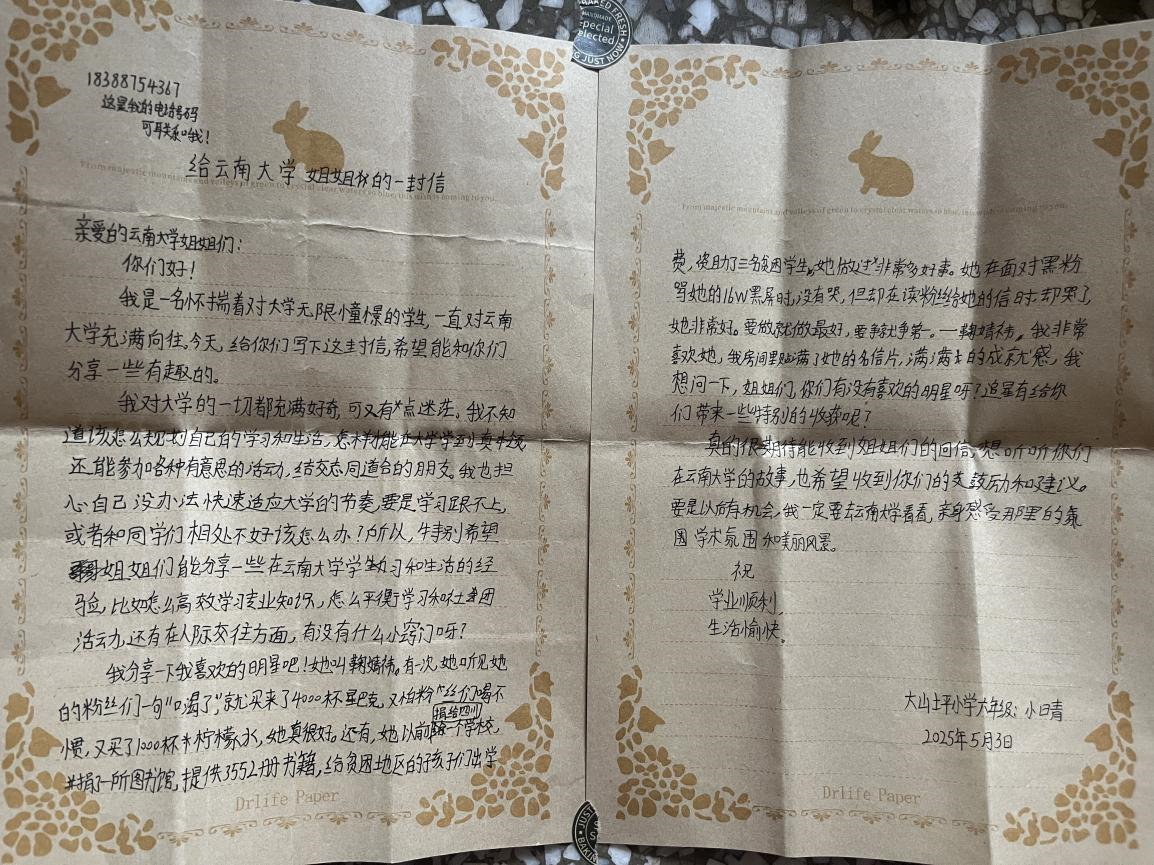 BAKED FRESH
HANDMADE
Special
Selected
JUST NOW
18388754367
这是我的电话号码
可联系哦!
给云南大学姐姐的一封信
From majestic mountains and valleys of green to crystal clear waters so blue, this wish is coming to you.
亲爱的云南大学姐姐们:
你们好!
我是一名怀揣着对大学无限憧憬的学生,一直对云南
大学充满向往,今天,给你们写下这封信,希望能和你们
分享一些有趣的。
我对大学的一切都充满好奇,可又有点迷茫。我不知
道该怎么规划自己的学习和生活,怎样才能在大学学到真本领
还能参加各种有意思的活动,结交志同道合的朋友。我也担
心自己没办法快速适应大学的节奏,要是学习跟不上,
或者和同学们相处不好该怎么办?所以,特别希望
姐姐们能分享一些在云南大学学习和生活的经
验,比如怎么高效学习专业知识,怎么平衡学习和社团
活动,还有在人际交往方面,有没有什么小窍门呀?
我分享一下我喜欢的明星吧!她叫鞠婧祎。有一次,她听见她
的粉丝们一句“口渴了”就买来了4000杯星巴克,又怕粉丝们喝不
惯,又买了1000杯柠檬水,她真很好。还有,她以前捐给四川一个学校,
捐了一所图书馆,提供3552册书籍,给贫困地区的孩子们出学
Drlife Paper
From majestic mountains and valleys of green to crystal clear waters so blue, this wish is coming to you.
费,资助了三名贫困学生。她做过非常多好事。她在面对黑粉
骂她的16w黑屏时,没有哭,但却在读粉丝给她的信时却哭了,
她非常好。要做就做最好,要争就争第一。—鞠婧祎。我非常
喜欢她,我房间里贴满了她的名信片,满满的成就感,我
想问一下,姐姐们,你们有没有喜欢的明星呀?追星有给你
们带来一些特别的收获呢?
真的很期待能收到姐姐们的回信,想听听你们
在云南大学的故事,也希望收到你们的鼓励和建议。
要是以后有机会,我一定要去云南大学看看,亲身感受那里的氛
围学术氛围和美丽风景。
祝
学业顺利,
生活愉快。
大山土平小学六年级:小日青
2025年5月3日
Drlife Paper
JUST
BAKING